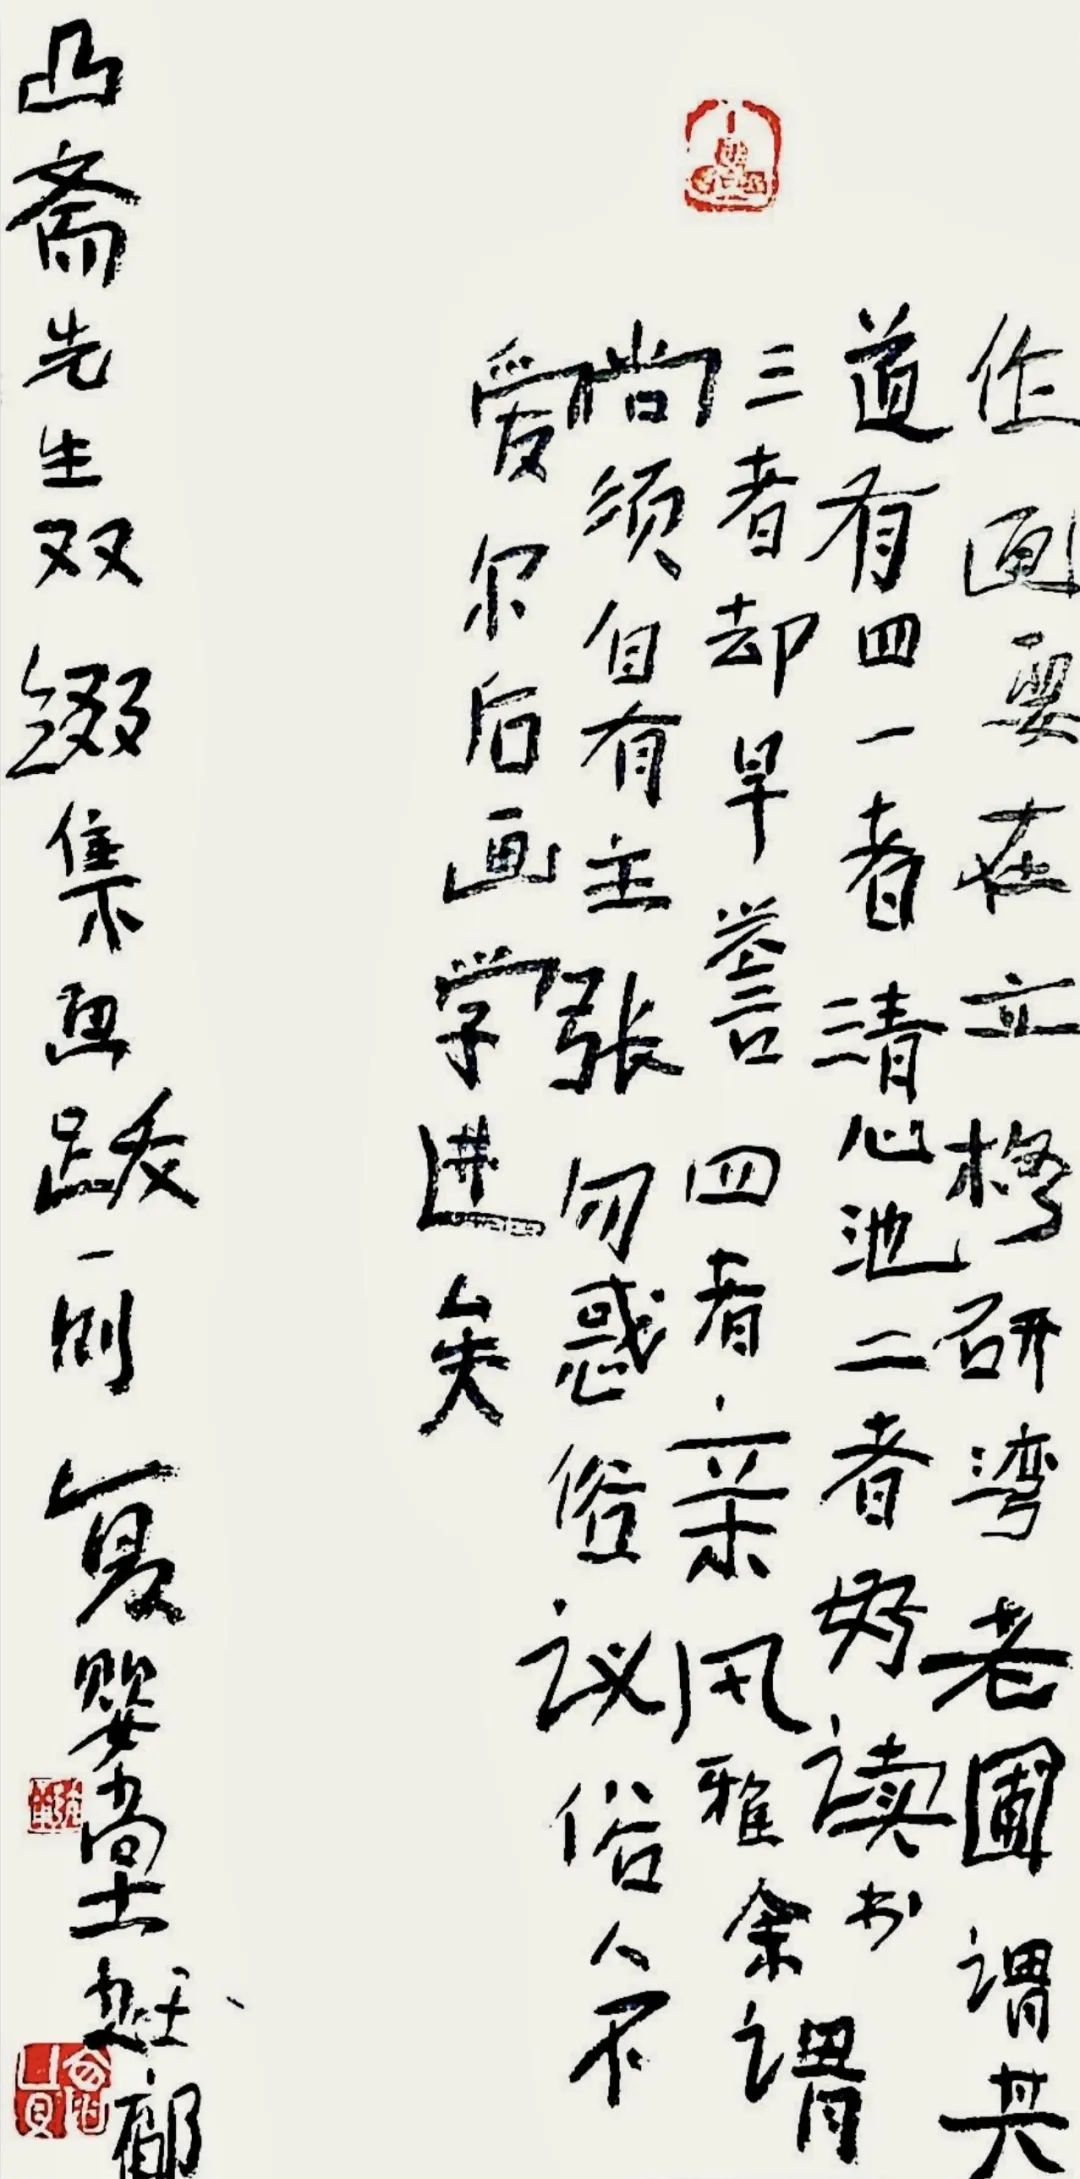 作画要在立格研湾老圃谓其
道有四一者清心池二者好读书
三者却早誉四者亲风雅余谓
尚须自有主张勿惑俗议俗人不
爱尔后画学进矣
凸斋先生双缀集画跋一则 夏婴堂